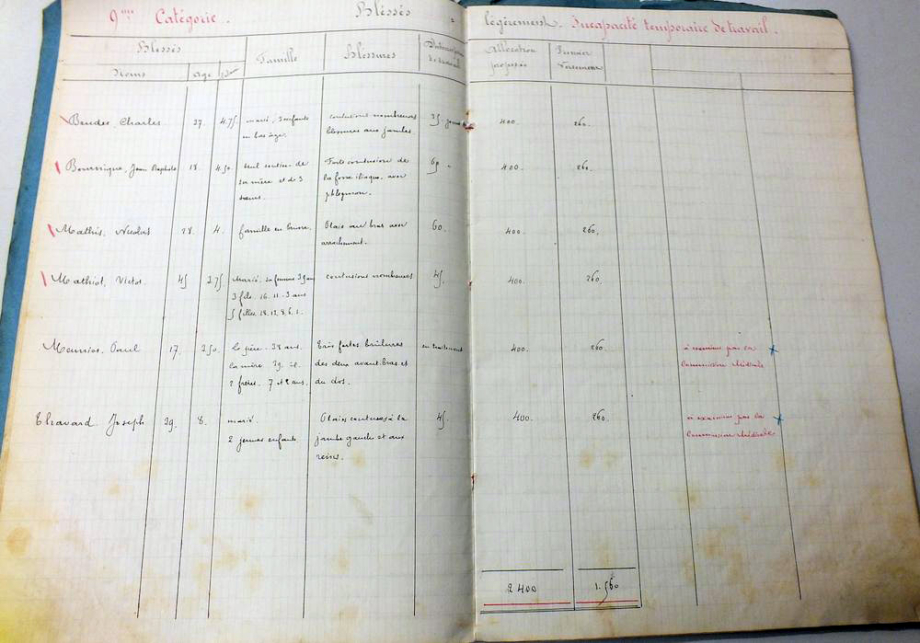 9ème Catégorie. Blessés légèrement. Incapacité temporaire de travail.
Blessés Famille Blessures Allocation proposée Premier Versement
Noms Age
Charles 27. 4.75. marié, 3 enfants contusions nombreuses 35 jours 400. 260.
en bas âge. blessures aux jambes
Jean Baptiste 18 4.50 seul soutien de Forte contusion de 60 " 400. 260.
sa mère et de 3 la fosse iliaque, avec
sœurs. phlegmon.
Mathis, Nicolas 28. 4. famille en Plaie au bras avec 60. 400. 260.
arrachement.
Mathiot, Victor. 45 3.75 marié. sa femme 39 ans contusions nombreuses 45. 400 260.
3 fils. 16. 11. 3 ans
5 filles. 18. 12. 8. 6. 1.
Meunier, Paul 17. 3.50. le père. 38 ans. très fortes brûlures en traitement 400. 260. à examiner par la
la mère. 39. id. des deux avant-bras et Commission Médicale
2 frères. 7 et 2 ans. du dos.
Thavard Joseph 29. 8. marié Plaies contuses à la 45 400. 260. à examiner par la
2 jeunes enfants. jambe gauche et aux Commission Médicale
reins.
2 400 1.560